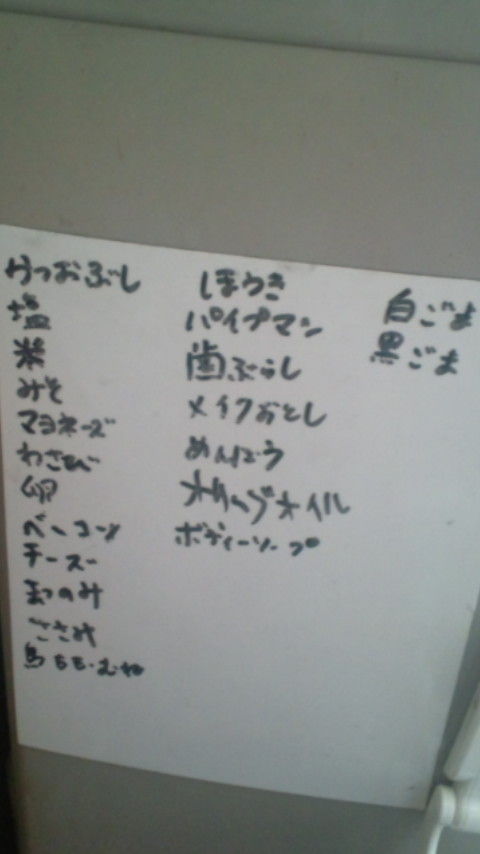 かつおぶし
塩
米
みそ
マヨネーズ
わさび
卵
ベーコン
チーズ
ささみ
鳥もも・むね
ほうき
パイプマン
歯ぶらし
メイクおとし
めんぼう
オリーブオイル
ボディーソープ
白ごま
黒ごま